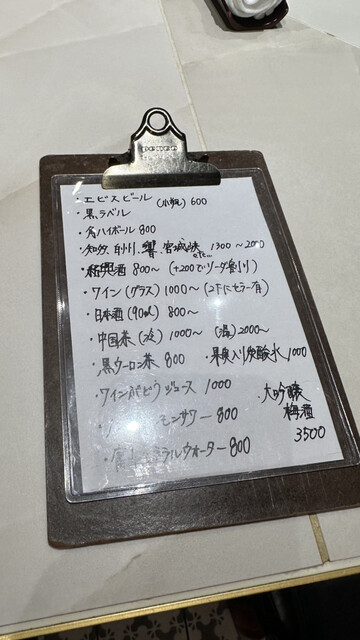 ・エビスビール (小瓶) 600
・黒ラベル
・角ハイボール 800
・知多、白州、響、宮城峡 etc… 1300〜2000
・紹興酒 800〜 (+200でソーダ割り)
・ワイン(グラス) 1000〜 (2Fにセラー有)
・日本酒(90ml) 800〜
・中国茶(冷) 1000〜 (温)2000〜
・黒ウーロン茶 800 ・果実入り炭酸水 1000
・ワインぶどうジュース 1000
モンサワー 800
ラルウォーター 800
・大吟醸
梅酒
3500